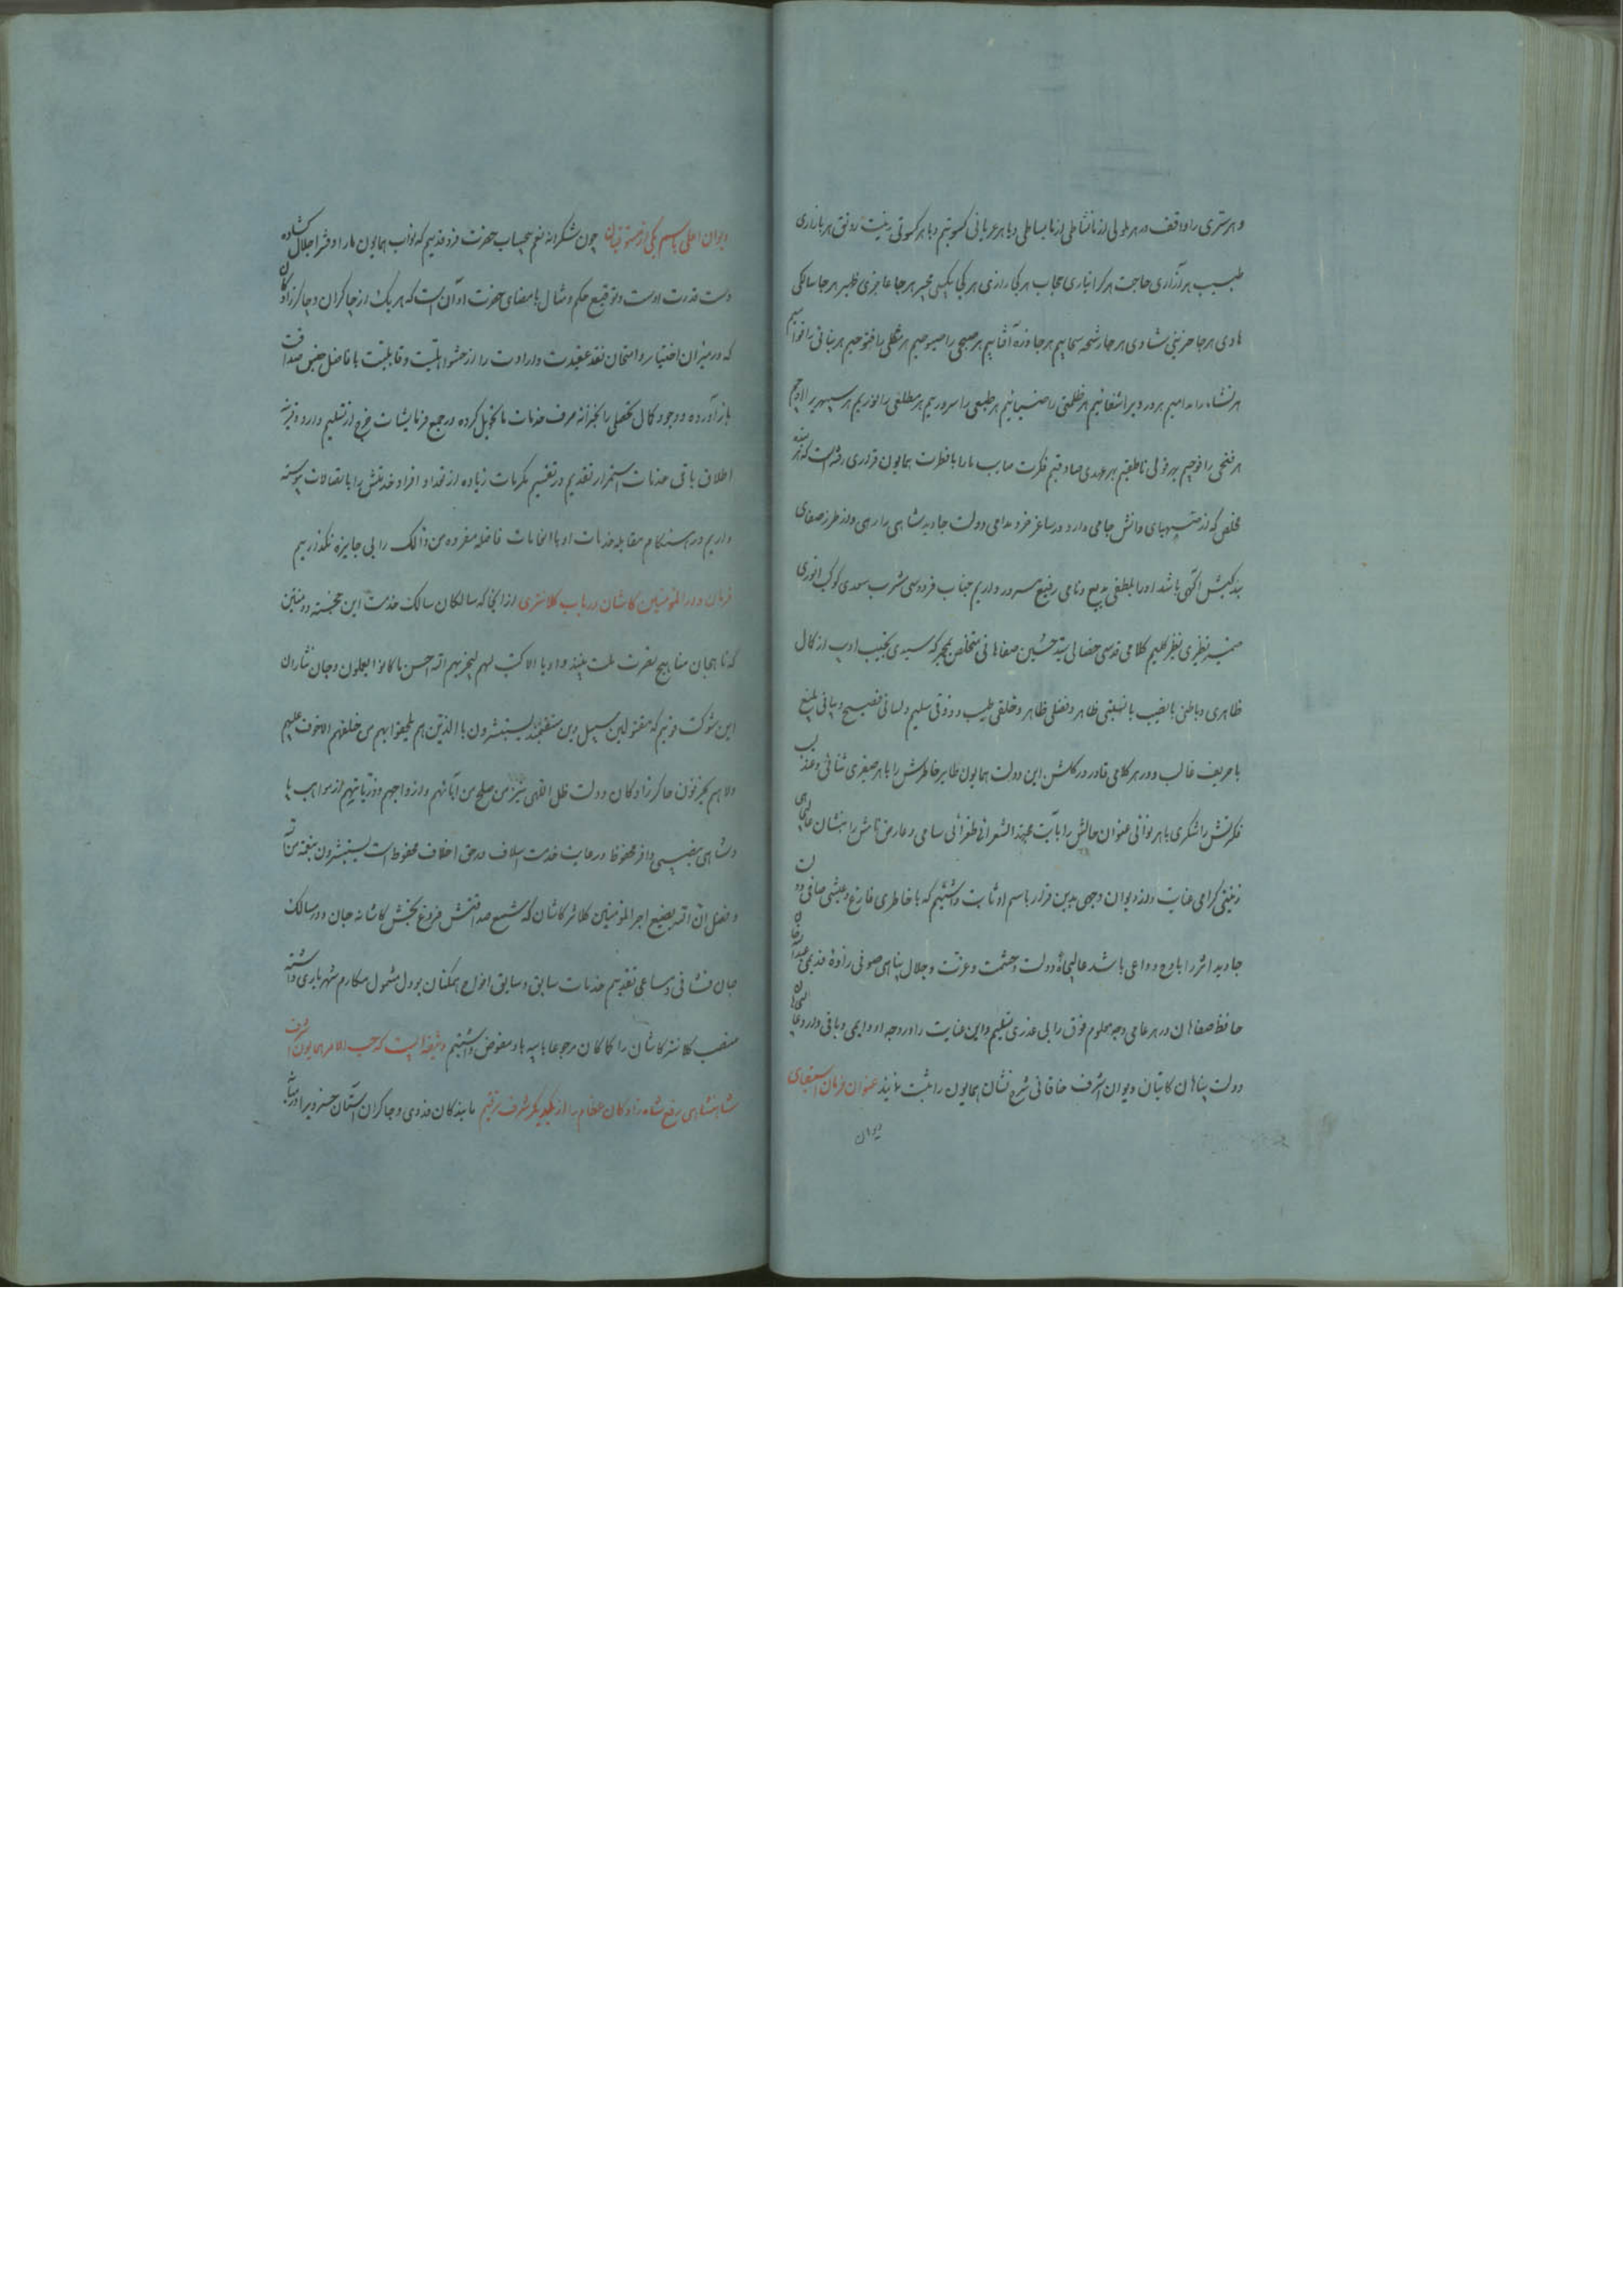 و هر ستری را واقف در هر طولی از ما نشاطی از ما بساطی و با هر عریانی کسوتیم و با هر کسوتی زینت رونق هر بازاری
طبیب هر آزاری حاجت هر کرانباری حجاب هر کجا رازی هر کجا بیکسی مجیر هر جا عاجزی ظهیر هر جا سالکی
هادی هر جا حزینی شادی هر جا رشحه سحابیم هر جا ذره آفتابیم هر صبحی را صبوحیم هر
هر نشاه را مدامیم هر درد را شفائیم هر ظلمتی را ضیائیم هر طبعی را سروریم هر مطلعی را نوریم هر سپهر را اوجیم
هر فتحی را فوجیم بهر قولی ناطقیم بهر عهدی صادقیم فکرت صایب ما را با فطرت همایون قراری رفته است که هر
مخلص که از دانش جامی دارد در ساغر خرد مدامی دولت جاوید شاهی را رهی و از طرز صفای
باشد او را بلطفی بدیع و نامی رفیع مسرور داریم جناب فردوسی مشرب سعدی کوکب انوری
ضمیر نظیری نظر کلیم کلامی قدسی خصالی سید حسین صفاهانی متخلص بمجمر که سیدی نجیب ادیب از کمال
ظاهری و باطن با نصیب با نسبتی ظاهر و فضلی ظاهر و خلقی طیب و ذوقی سلیم و لسانی فصیح و بیانی بلیغ
با حریف غالب و در هر کلامی قادر در گلشن این دولت همایون طایر خاطرش را با هر صفیری ثنائی و عذب
فکرتش را شکری با هر نوائی عنوان حالش را بآیت مجتهد الشعرائی طغرائی سامی و عارض نامش را بنشان عالیجاهی
زینتی گرامی عنایت و از دیوان وجهی بدین قرار باسم او ثابت داشتیم که با خاطری فارغ و عیشی صافی دولت
جاوید اثر را باوج دواعی باشد عالیجاه دولت و حشمت و عزت و جلال پناهی صوفی زاده قدیمی
حافظ صفاهان در هر عامی وجه معلوم فوق را بی عذری تسلیم و این عنایت را در وجه او دایمی و باقی دارد عالیجاهان
دولت پناهان کاتبان دیوان اشرف خاقانی شرح نشان همایون را ثبت نمایند عنوان فرمان استیفای
دیوان
دیوان اعلی باسم یکی از مستوفیان چون شکرانه نعم بیحساب حضرت فرد قدیم که نواب همایون ما را دفتر اجلال گشاده
دست قدرت اوست و توقیع حکم و مثال بامضای حضرت او آن است که هر یک از چاکران و چاکرزادگان
که در میزان اختیار و امتحان نقد عقیدت و ارادت را از حشو اهلیت و قابلیت با فاضل صداقت
باز آورده و وجود کمال تحصلی را بخزانه صرف خدمات ما تحویل کرده و در جمیع فرمایشات از تسلیم دارد
اطلاق باقی خدمات استمرار تقدیم در تقسیم مکرمات زیاده از تعداد افراد خدمتش را باتصالات پیوسته
داریم و در هنگام مقابله خدمات او با انعامات فاضله مفروده من ذالک را بی جایزه نگذاریم
فرمان دار المؤمنین کاشان در باب کلانتری از آنجا که سالکان سالک خدمت این خجسته دو
که ناهجان مناهیج نصرت ملت لیجزیهم الله احسن ما کانوا یعملون و جان نثاران
این شوکت قویم که مقتولین سبیل دین یستبشرون بالذین لم یلحقوا بهم من خلفهم الا خوف علیهم
ولا هم یحزنون چاکرزادگان دولت ظل اللهی نیز من صلح من آبائهم و ازواجهم و ذریاتهم از مواهب با
و شاهی نصیبی وافر محفوظ و رعایت خدمت اسلاف در حق اخلاف محفوظ است یستبشرون بنعمة من الله
و فضل ان الله لا یضیع اجر المؤمنین کلانتر کاشان که شمع صداقتش فروغ بخش کاشانه جان و در مسالک
جان فشانی و مساعی تقدیم خدمات سابق و سابق انواع همگنان بود مشمول مکارم شهریاری داشته
منصب کلانتر کاشان را کماکان مرجوعا بابیه باو مفوض داشتیم وثیقه ایست که حسب الامر همایون اشرف
شاهنشاهی رفع شاه زادگان عظام را از یکدیگر شرف ترقیم ما بندگان فدوی و چاکران آستان خسرویرا